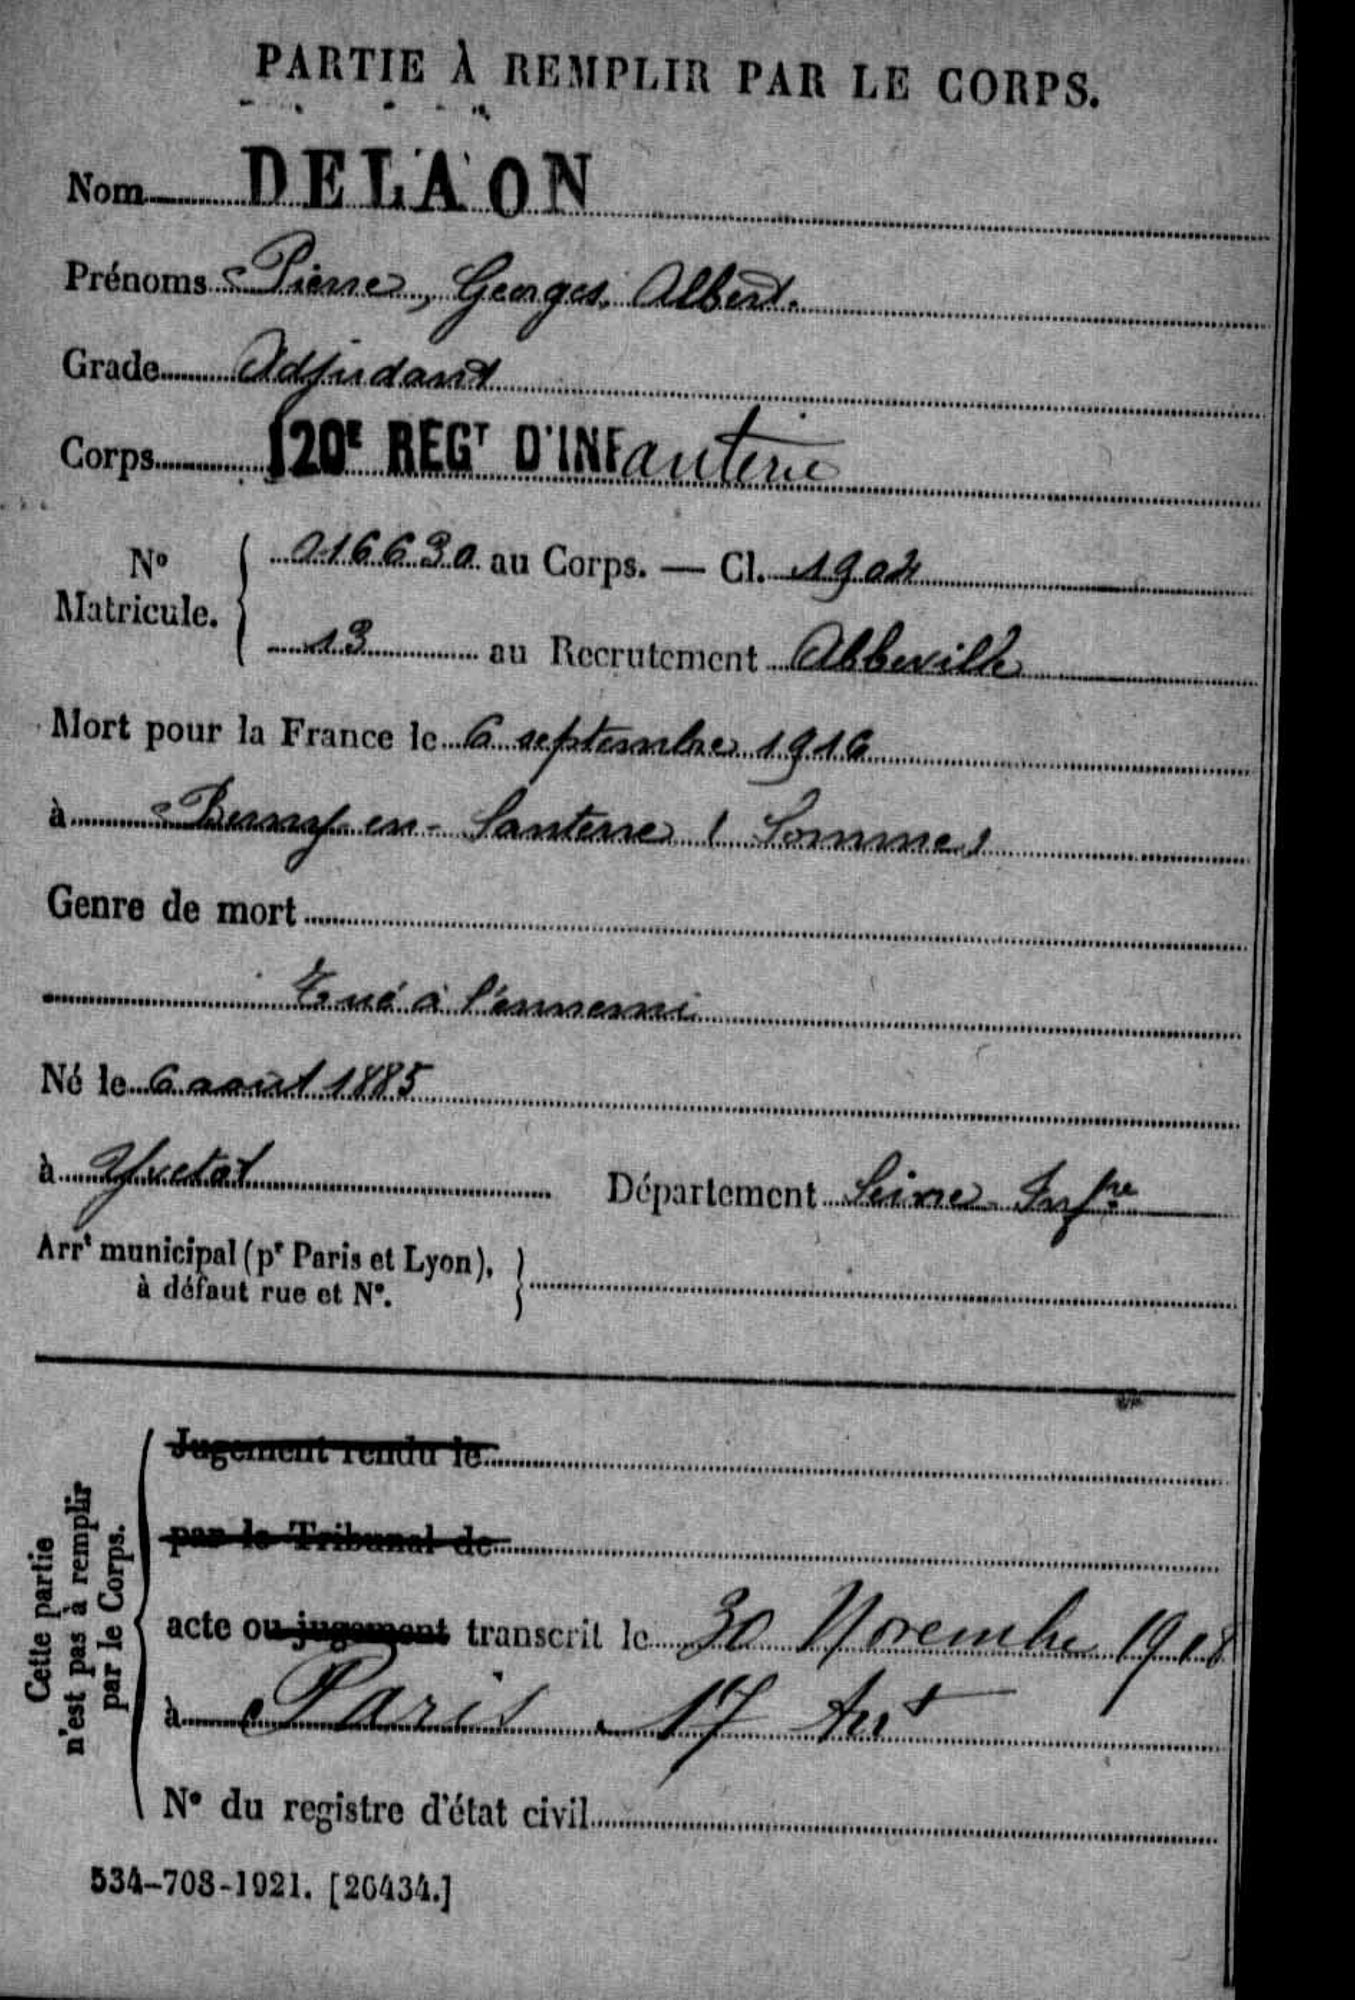 PARTIE À REMPLIR PAR LE CORPS.
Nom DELAON
Prénoms Pierre, Georges, Albert.
Grade Adjudant
Corps 120E REGT D'INFanterie
No Matricule. 016630 au Corps. — Cl. 1904
13 au Recrutement Abbeville
Mort pour la France le 6 septembre 1916
à Berny-en-Santerre (Somme)
Genre de mort
Tué à l'ennemi
Né le 6 août 1885
à Yvetot Département Seine-Infre
Arrt municipal (pr Paris et Lyon),
à défaut rue et No.
Cette partie
n'est pas à remplir
par le Corps.
Jugement rendu le
par le Tribunal de
acte ou jugement transcrit le 30 Novembre 1918
à Paris 17 Arrt
No du registre d'état civil
534-708-1921. [26434.]